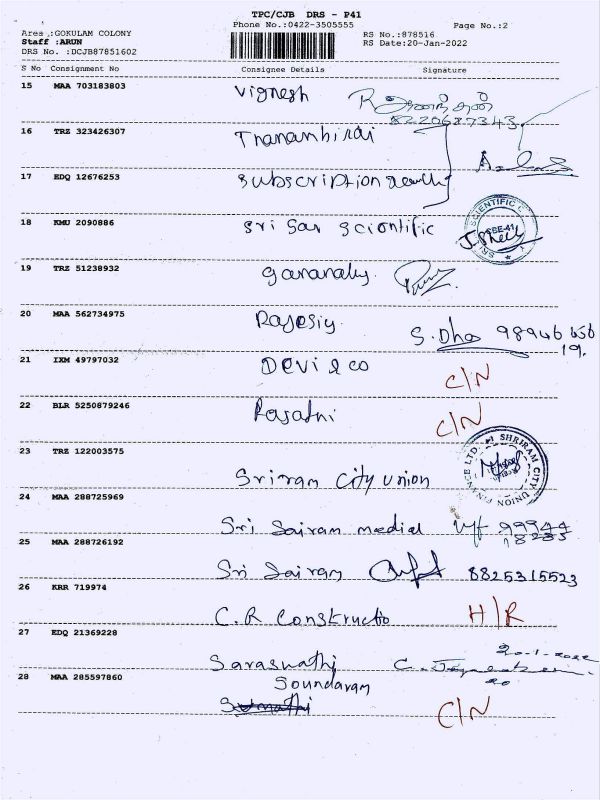 TPC/CJB DRS - P41
Phone No.:0422-3505555 Page No.:2
Area :GOKULAM COLONY RS No.:878516
Staff :ARUN RS Date:20-Jan-2022
DRS No. :DCJB87851602
S No Consignment No Consignee Details Signature
15 MAA 703183803 Vignesh
8220687343
16 TRZ 323426307
17 EDQ 12676253 Subscription
18 KMU 2090886 Sri Sai Scientific
SCIENTIFIC
19 TRZ 51238932
20 MAA 562734975 S.Dha 98946
19.
21 IXM 49797032 Devi & co C/N
22 BLR 5250879246 C/N
23 TRZ 122003575 Sriram City Union
SHRIRAM CITY UNION FINANCE LTD
24 MAA 288725969 Sri Sairam medial 99944
18285
25 MAA 288726192 Sri Sairam 8825315523
26 KRR 719974 C.R Constructio H/R
27 EDQ 21369228 Saraswathi 20-1-2022
20
28 MAA 285597860 Soundaram
C/N